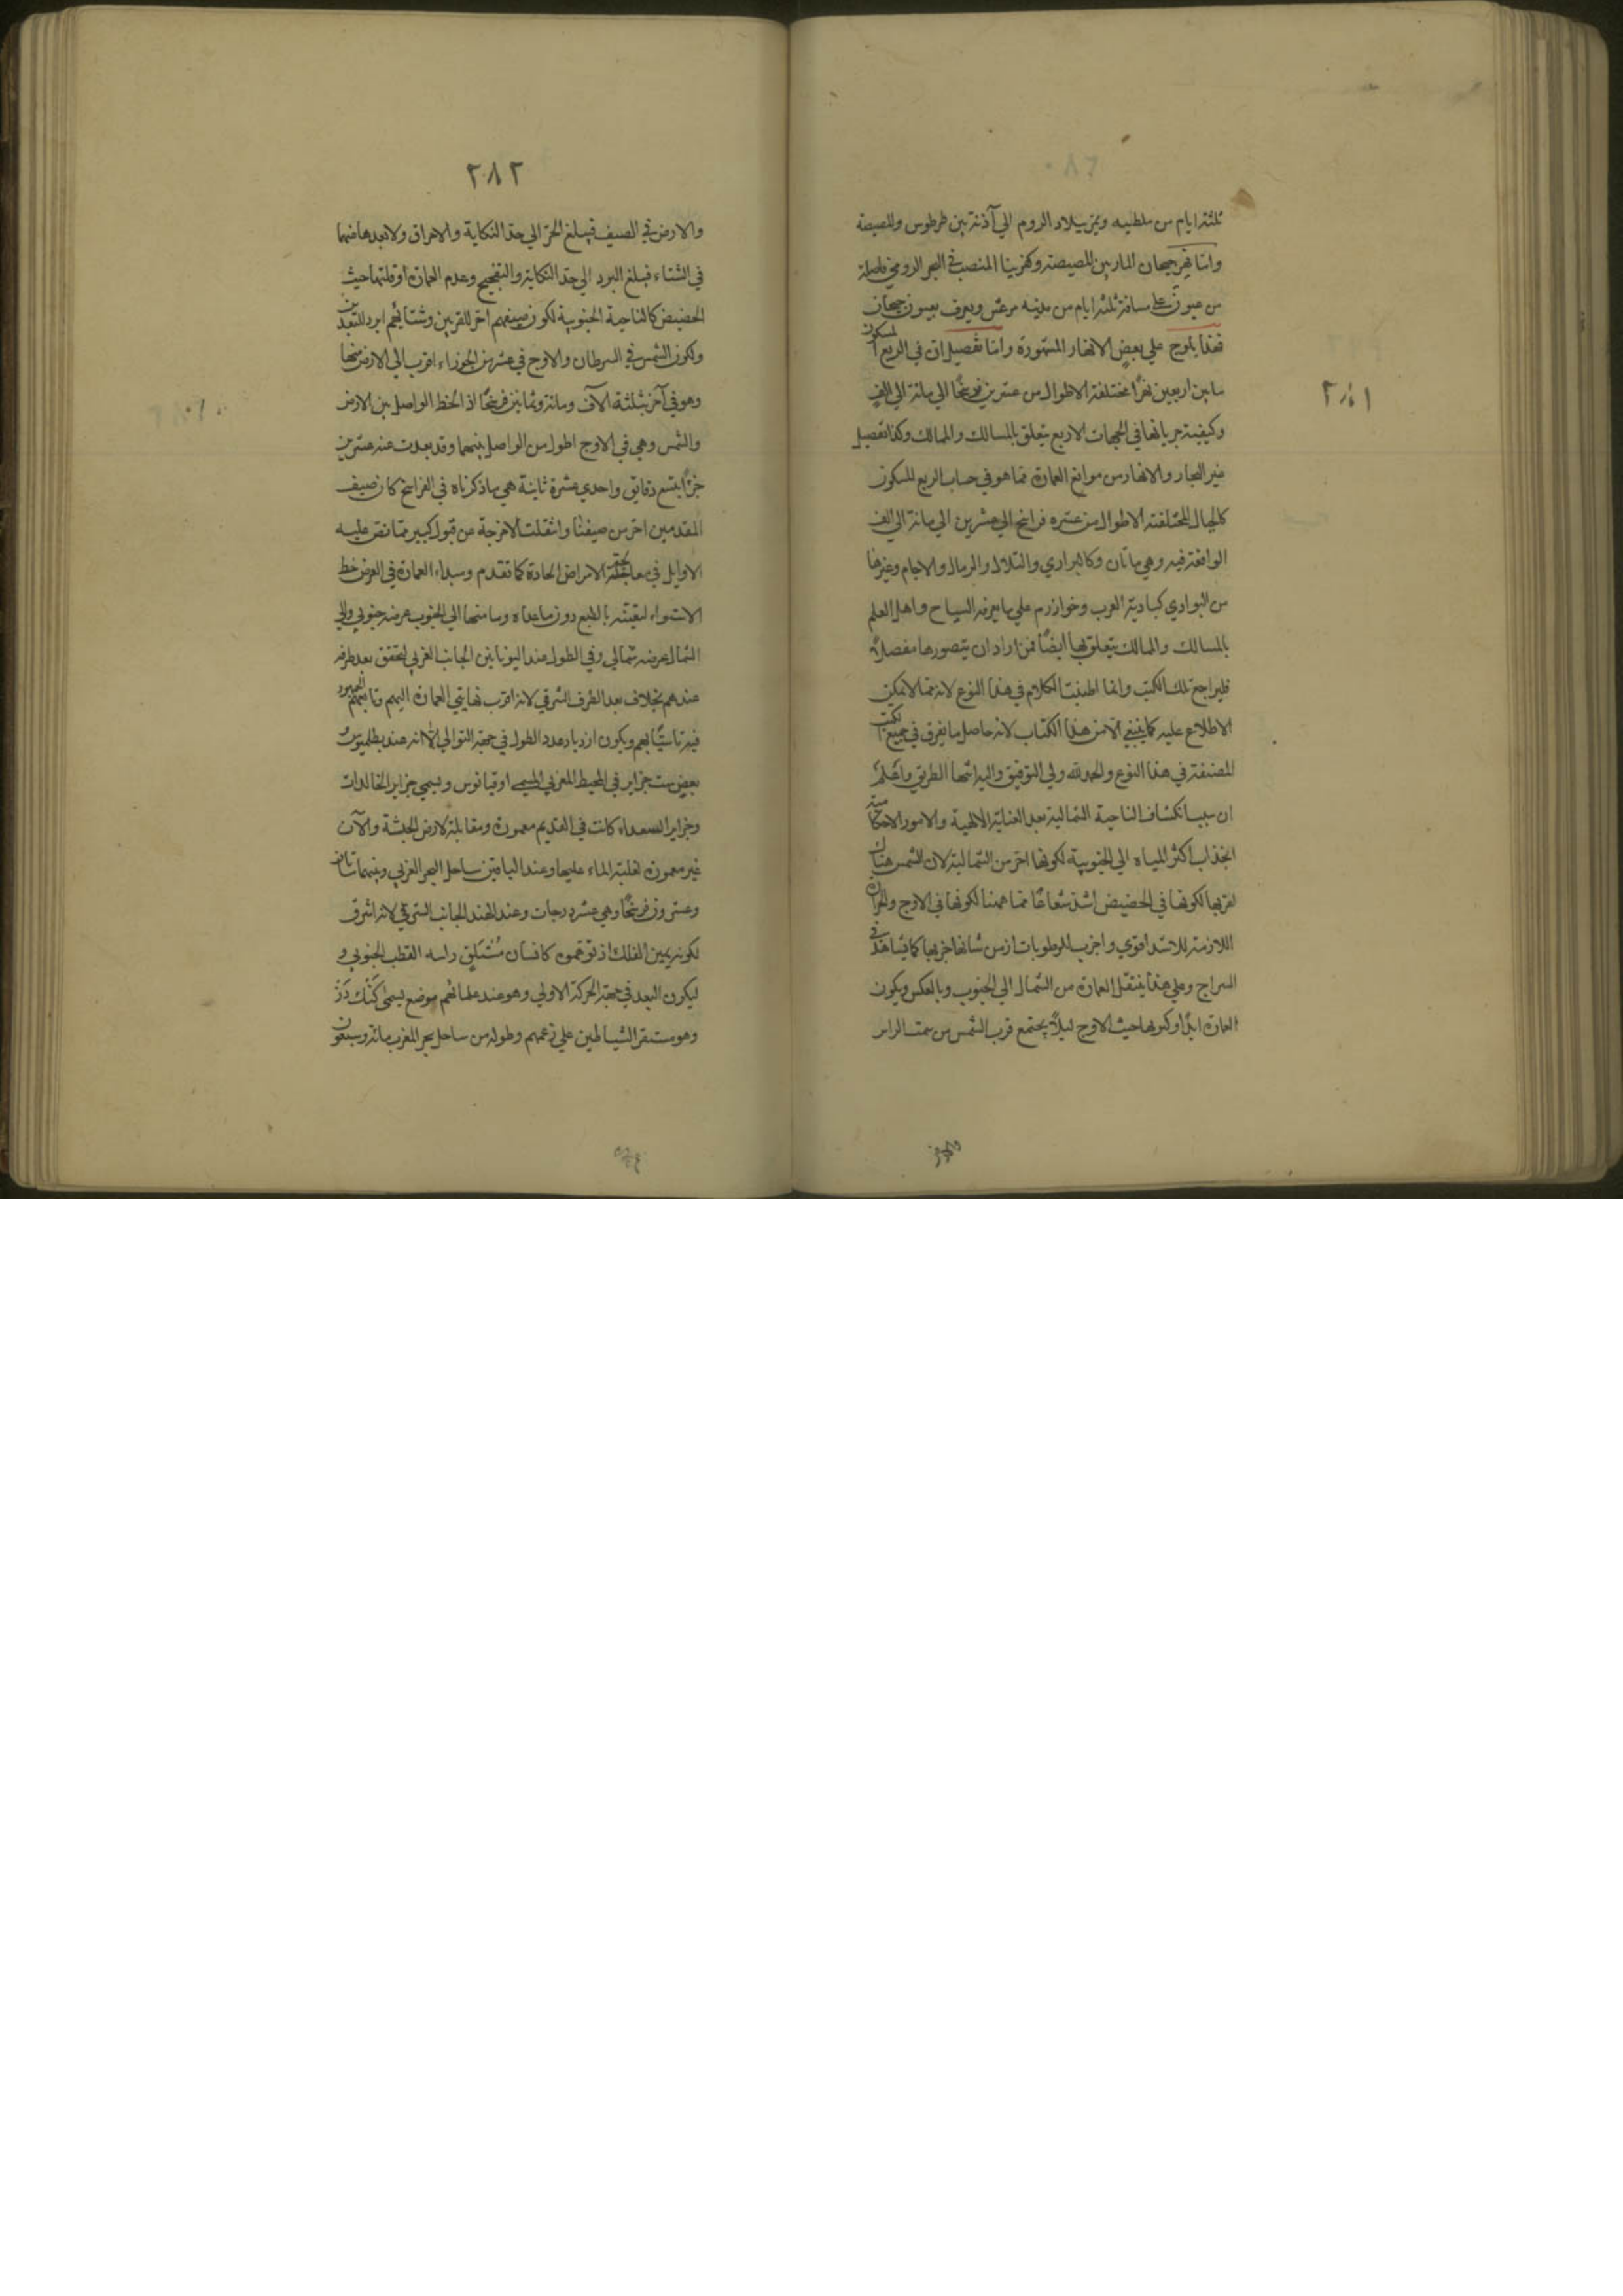 ثلثة ايام من ملطيه ويمر ببلاد الروم الي آذنة بين طرطوس والمصيصة
واما نهر جيحان المار بين المصيصة وكفربيا المنصب في البحر الرومي فاصله
من عيون على مسافة ثلثة ايام من مدينه مرعش ويعرف بعيون جيحان
فهذا يلوح علي بعض الانهار المشهورة واما تفصيل ان في الربع المسكون
ما بين اربعين نهرًا مختلفة الاطوال من عشرين فرسخًا الي مائة الي الف
وكيفية جريانها في الجهات الاربع يتعلق بالمسالك والممالك وكذا تفصيل
غير البحار والانهار من موانع العمارة مما هو في حساب الربع المسكون
كالجبال المختلفة الاطوال من عشره فراسخ الي عشرين الي مائة الي الف
الواقعة فيه وهي مأتان وكالبراري والتلال والرمال والاجام وغيرها
من البوادي كبادية العرب وخوارزم علي ما يعرفه السياح واهل العلم
بالمسالك والممالك يتعلق بها ايضًا فمن اراد ان يتصورها مفصلة
فليراجع تلك الكتب وانما اطنبت الكلام في هذا النوع لانه مما لا يمكن
الاطلاع عليه كما ينبغي الا من هذا الكتاب لانه حاصل ما تفرق في جميع الكتب
المصنفة في هذا النوع والحمد لله ولي التوفيق واليه انتهاء الطريق واعلم
ان سبب انكشاف الناحية الشمالية بعد العناية الالهية والامور الاحكامية
انجذاب اكثر المياه الي الجنوبية لكونها احر من الشمالية لان الشمس هناك
لقربها لكونها في الحضيض اشد شعاعًا مما ههنا لكونها في الاوج والحرارة
اللازمة للاشد اقوي واجزب للرطوبات اذ من شانها جزبها كما يشاهد في
السراج وعلي هذا ينتقل العمارة من الشمال الي الجنوب وبالعكس ويكون
العمارة ابدًا وكونها حيث الاوج ليلًا يجتمع قرب الشمس من سمت الراس
٢٨١
٢٨٢
والارض في الصيف فيبلغ الحر الي حد النكاية والاحراق ولا بعدها منهما
في الشتاء فيبلغ البرد الي حد النكاية والتفجيج وعدم العمارة او قلتها حيث
الحضيض كالناحية الجنوبية لكون صيفهم احر للقربين وشتائهم ابرد للبعدين
ولكون الشمس في السرطان والاوج في عشرين الجوزاء اقرب الي الارض منها
وهو في آخره بثلثة الآف ومائة وثمانين فرسخًا اذ الخط الواصل بين الارض
والشمس وهي في الاوج اطول من الواصل بينهما وقد بعدت عنه عشرين
جزءًا بتسع دقايق واحدي عشرة ثانية هي ما ذكرناه في الفراسخ كان صيف
المقدمين احر من صيفنا وانتقلت الامزجة عن قبول كبير مما نص عليه
الاوايل في معالجة الامراض الحادة كما تقدم ومبداء العمارة في العرض خط
الاستواء لتعينه بالطبع دون ماعداه وما منها الي الجنوب عرضه جنوبي والي
الشمال عرضه شمالي وفي الطول عند اليونانين الجانب الغربي لتحقق بعد طرفه
عندهم بخلاف بعد الطرف الشرقي لانه اقرب نهايتي العمارة اليهم وتابعهم الجمهور
فيه تاسيًا بهم ويكون ازدياد عدد الطول في جهة التوالي الا انه عند بطلميوس
بعض ست جزاير في المحيط المغربي المسمي اوقيانوس ويسمي جزاير الخالدات
وجزاير السعداء كانت في القديم معمورة ومقابلة لارض الحبشة والآن
غير معمورة لغلبة الماء عليها وعند الباقين ساحل البحر الغربي وبينهما مأتان
وعشرون فرسخًا وهي عشر درجات وعند الهند الجانب الشرقي لانه اشرق
لكونه يمين الفلك اذ توهموه كانسان مستلق راسه القطب الجنوبي و
ليكون البعد في جهة الحركة الاولي وهو عند علمائهم موضع يسمى كنك دز
وهو مستقر الشياطين علي زعمهم وطوله من ساحل بحر المغرب مائة وسبعون